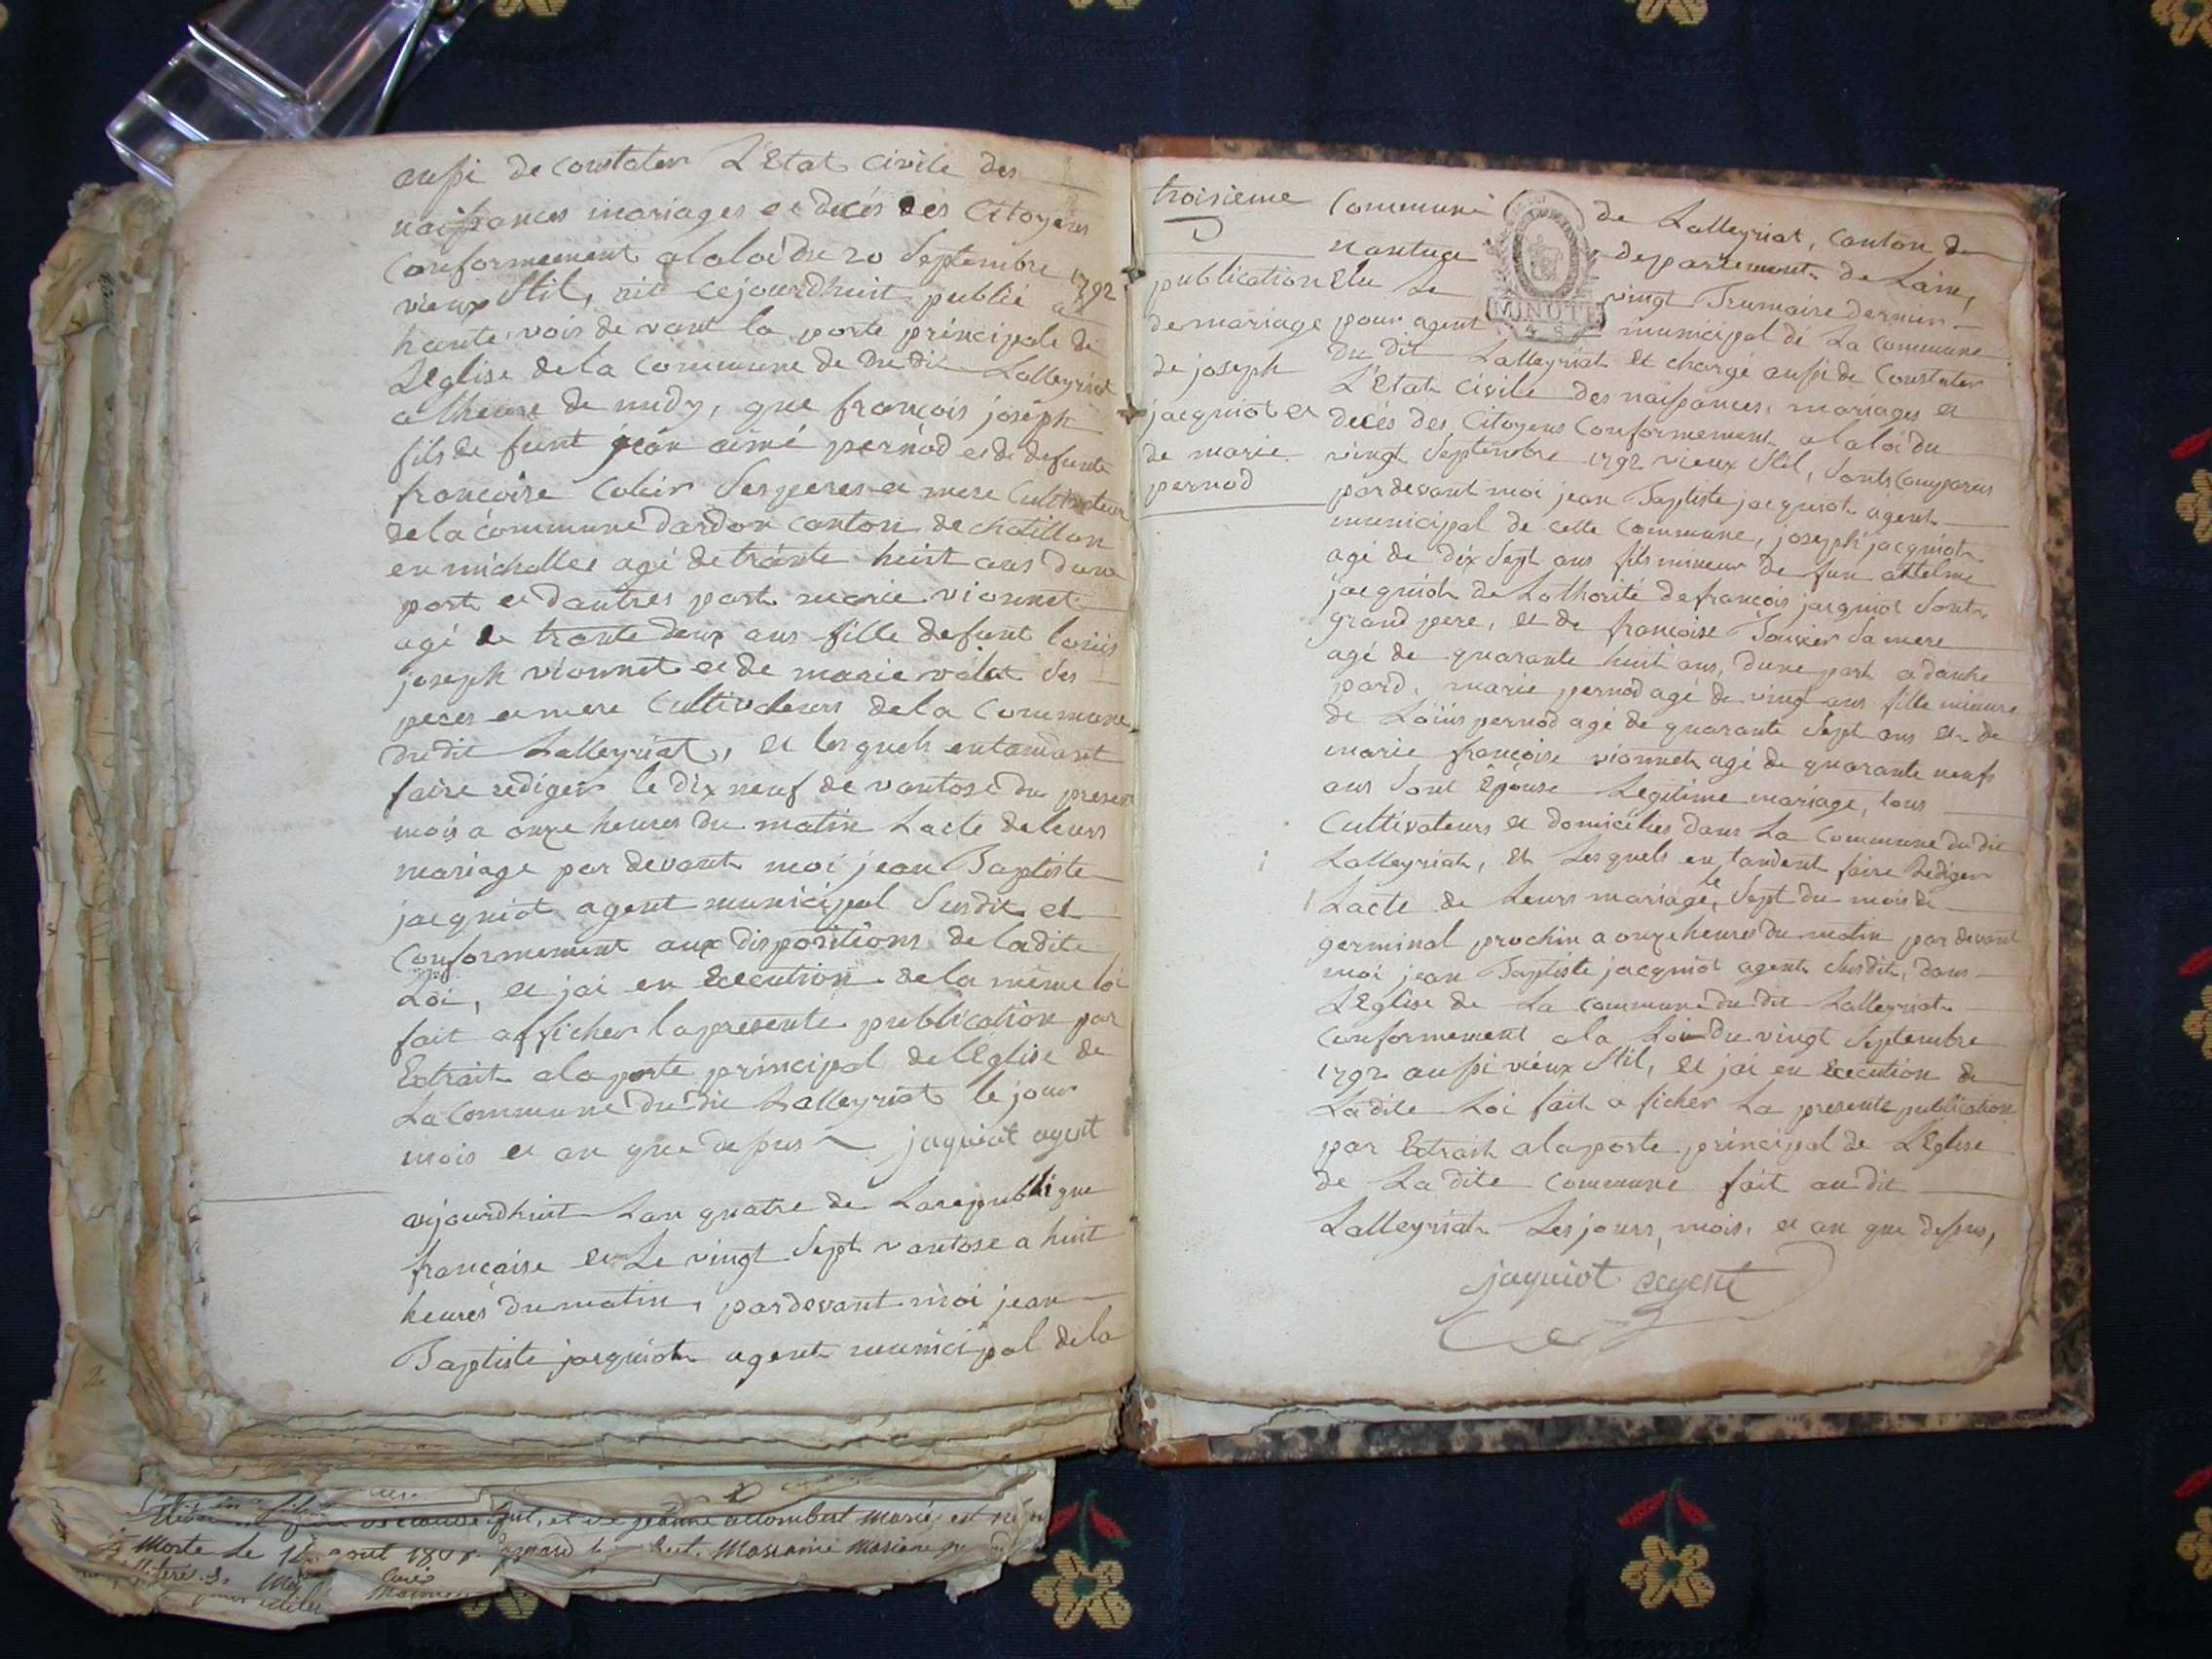 aussi de constater L'Etat civile des
naissances mariages et decés des Citoyens
Conformement a la loi du 20 Septembre 1792
vieux Stil, ait cejourdhuit publié a
haute vois de vant la porte principale de
L'Eglise de la Commune de du dit Lalleyriat
a lheure de midy, que françois joseph
fils de feunt jean aimé pernod et de defunte
francoise Colair Ses peres et mere Cultivateur
de la commune dardon canton de chatillon
en michallie agé de trante huit ans dune
part et dautres part marie vionnet
agé de trante deux ans fille defunt louis
joseph vionnet et de marie valat Ses
peres et mere Cultivateurs de la Commune
du dit Lalleyriat, et les quels entandant
faire rediger le dix neuf de vantose du present
mois a onze heures du matin Lacte de leurs
mariage par devant moi jean Baptiste
jacquiot agent municipal Susdit et
Conformement aux dispositions de la dite
Loi, et jai en Execution de la même loi
fait afficher la presente publication par
Extrait a la porte principal de l'Eglise de
La Commune du dit Lalleyriat le jour
mois et an que dessus jaquiot agent
aujourdhuit Lan quatre de La republique
francaise et Le vingt Sept vantose a huit
heures du matin, pardevant moi jean
Baptiste jacquiot agent municipal de la
troisieme
publication
de mariage
de joseph
jacquiot et
de marie
pernod
Commune de Lalleyriat, canton de
nantua departement de Lain,
Elu Le vingt Frumaire dernier
pour agent municipal de La Commune
MINUTE
4 S
du dit Lalleyriat et chargé aussi de Constater
L'Etat civile des naissances, mariages et
decés des Citoyens Conformement a la loi du
vingt Septembre 1792 vieux Stil, Sonts comparus
pardevant moi jean Baptiste jacquiot agent
municipal de cette Commune, joseph jacquiot
agé de dix Sept ans fils mineur de feu
jacquiot de Lothorité de françois jacquiot Sont
grand pere, et de françoise Sa mere
agé de quarante huit ans, dune part a dautre
pard, marie pernod agé de vingt ans fille mineure
de Loüis pernod agé de quarante Sept ans et de
marie françoise vionnet agé de quarante neufs
ans Sont Epouse Legitime mariage, tous
Cultivateurs et domiciliés dans La Commune du dit
Lalleyriat, Et Les quels en tandent faire Rediger
Lacte de Leurs mariage, le Sept du mois de
germinal prochin a onze heures du matin par devant
moi jean Baptiste jacquiot agent Susdit, dans
L'Eglise de La commune du dit Lalleyriat
Conformement a la Loi du vingt Septembre
1792 aussi vieux Stil, Et jai en Execution de
La dite Loi fait a ficher La presente publication
par Extrait a la porte principal de L'Eglise
de La dite Commune fait au dit
Lalleyriat Les jours, mois, et an que dessus,
jaquiot agent